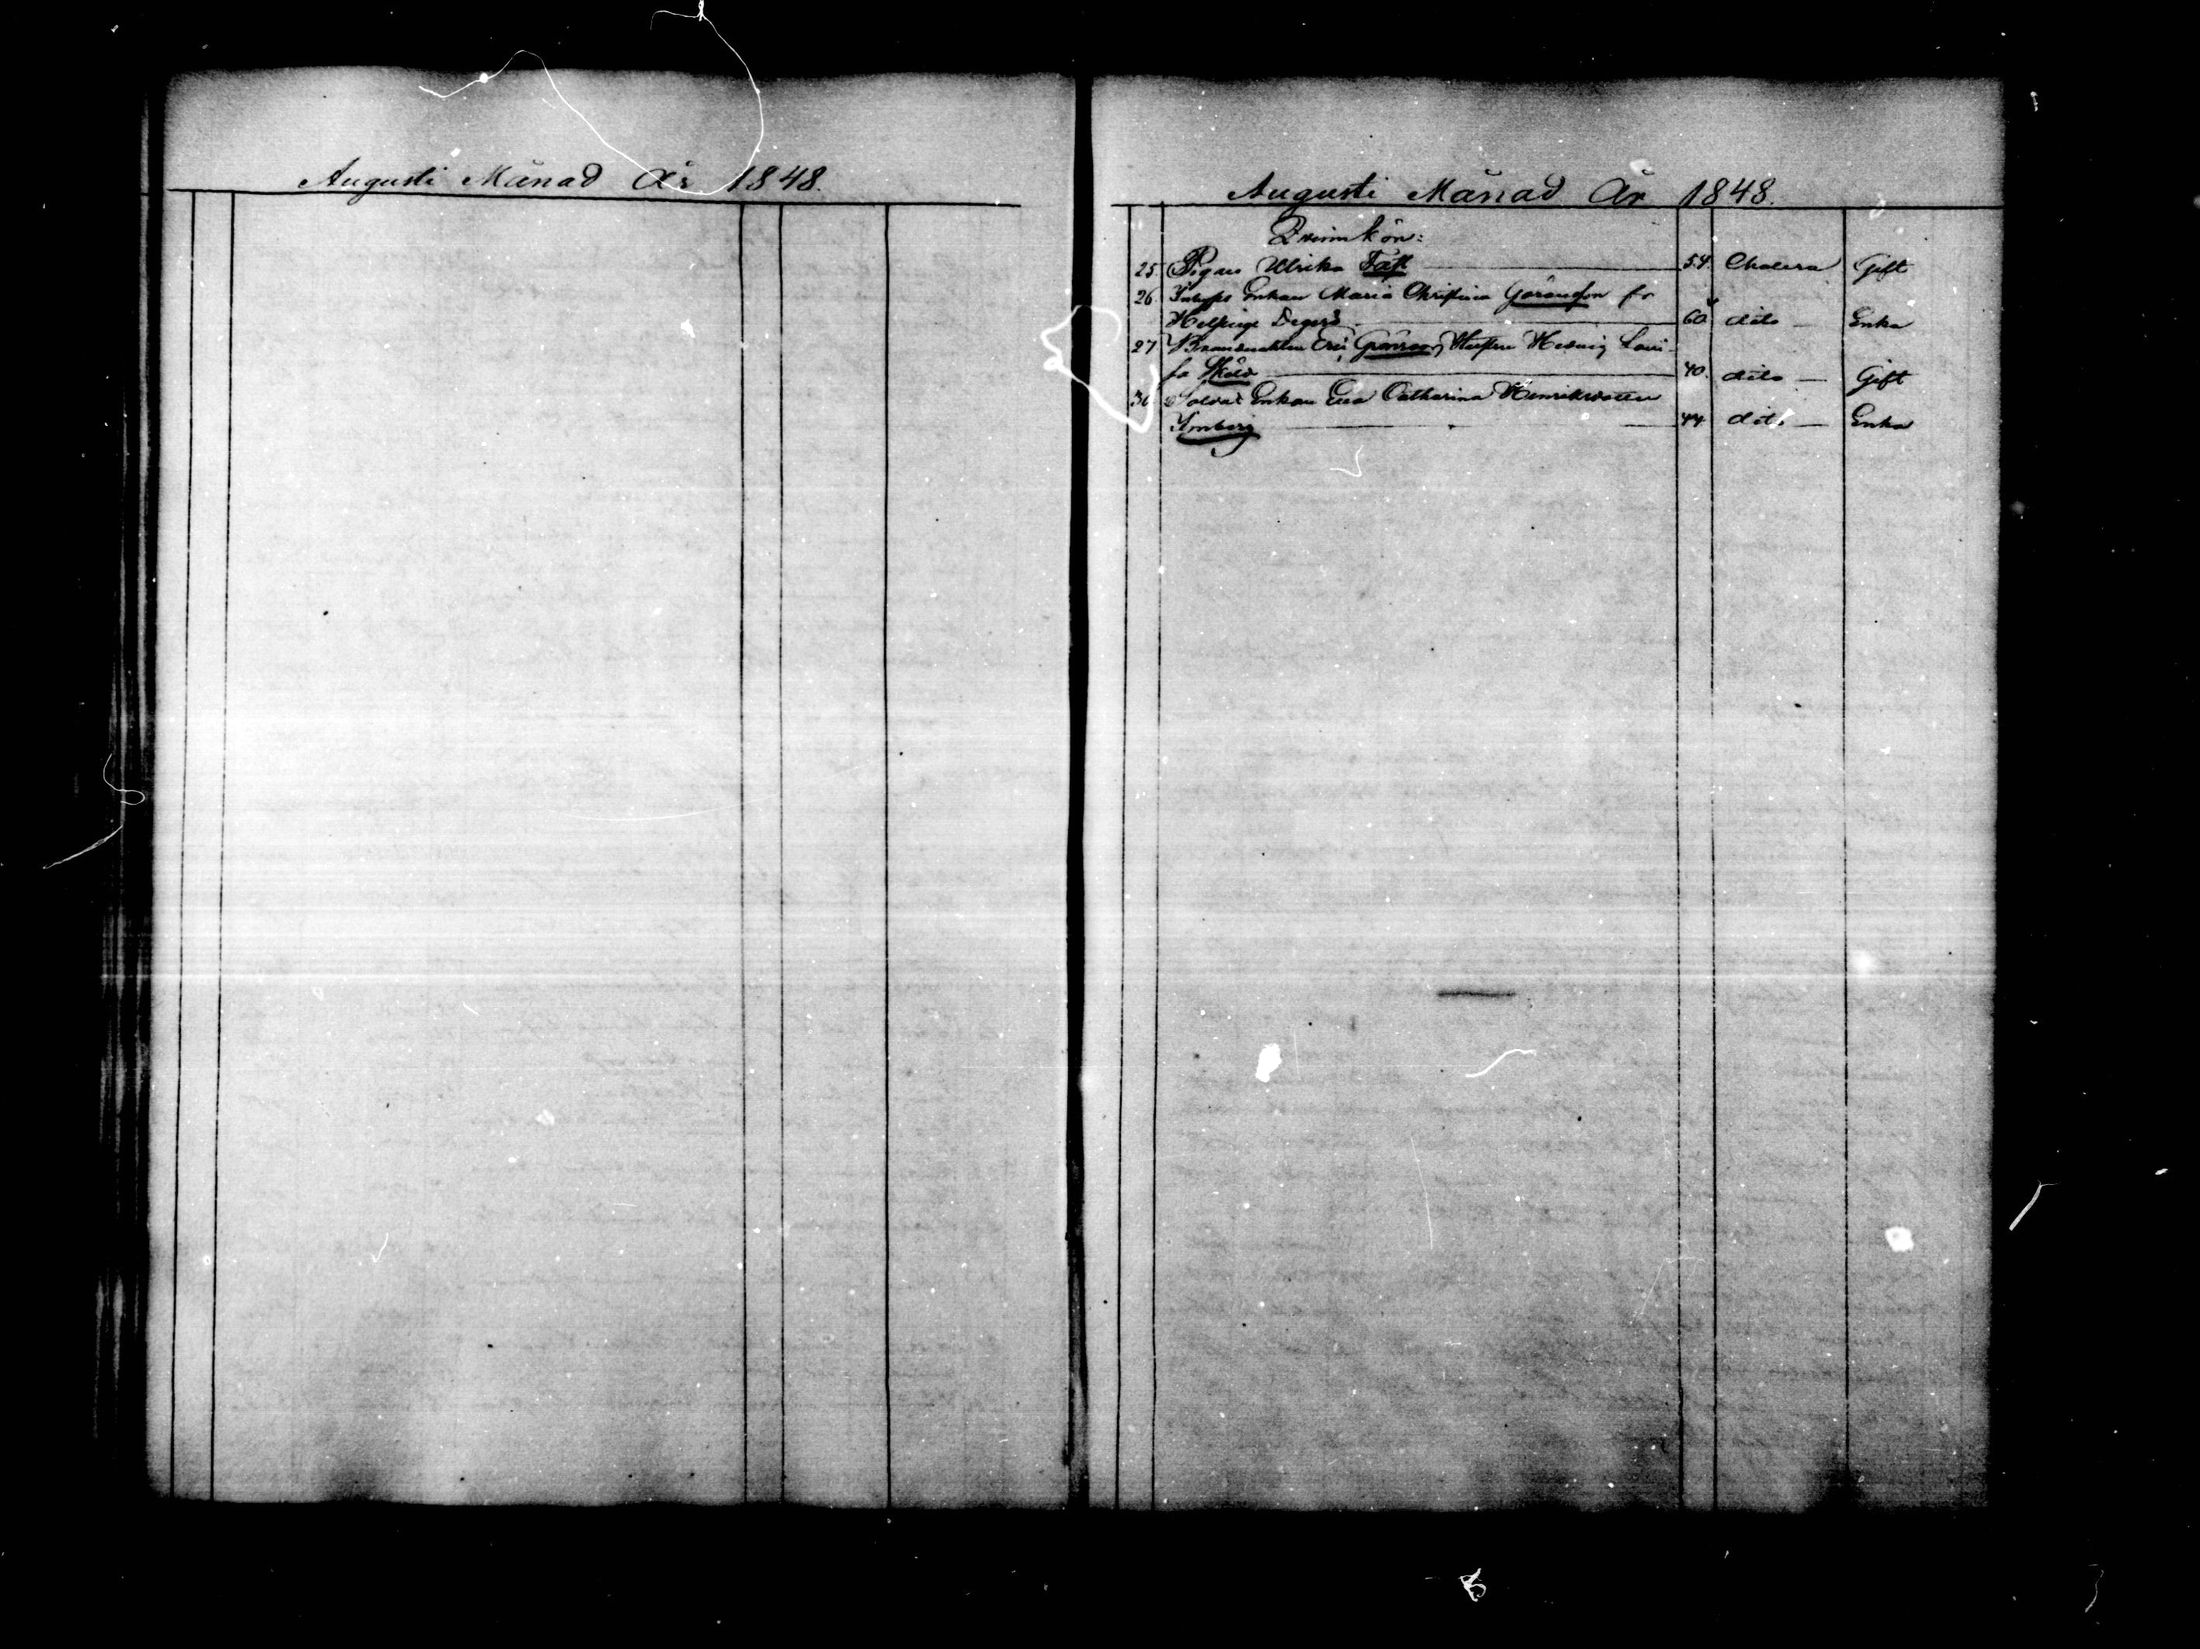 Augusti Månad År 1848.
Augusti Månad År 1848.
Qvinnkön:
25 Pigan Ulrika Fält 54. Cholera Gift
26 Enkan Maria Christina Göransson fr
Helsinge Degerö 60 dito Enka
27 Brandvakten Hustru Hedvig Lovi-
sa Sköld 40. dito Gift
30 Soldat Enkan Eva Catharina Henriksdotter
Limberg 44 dito Enka